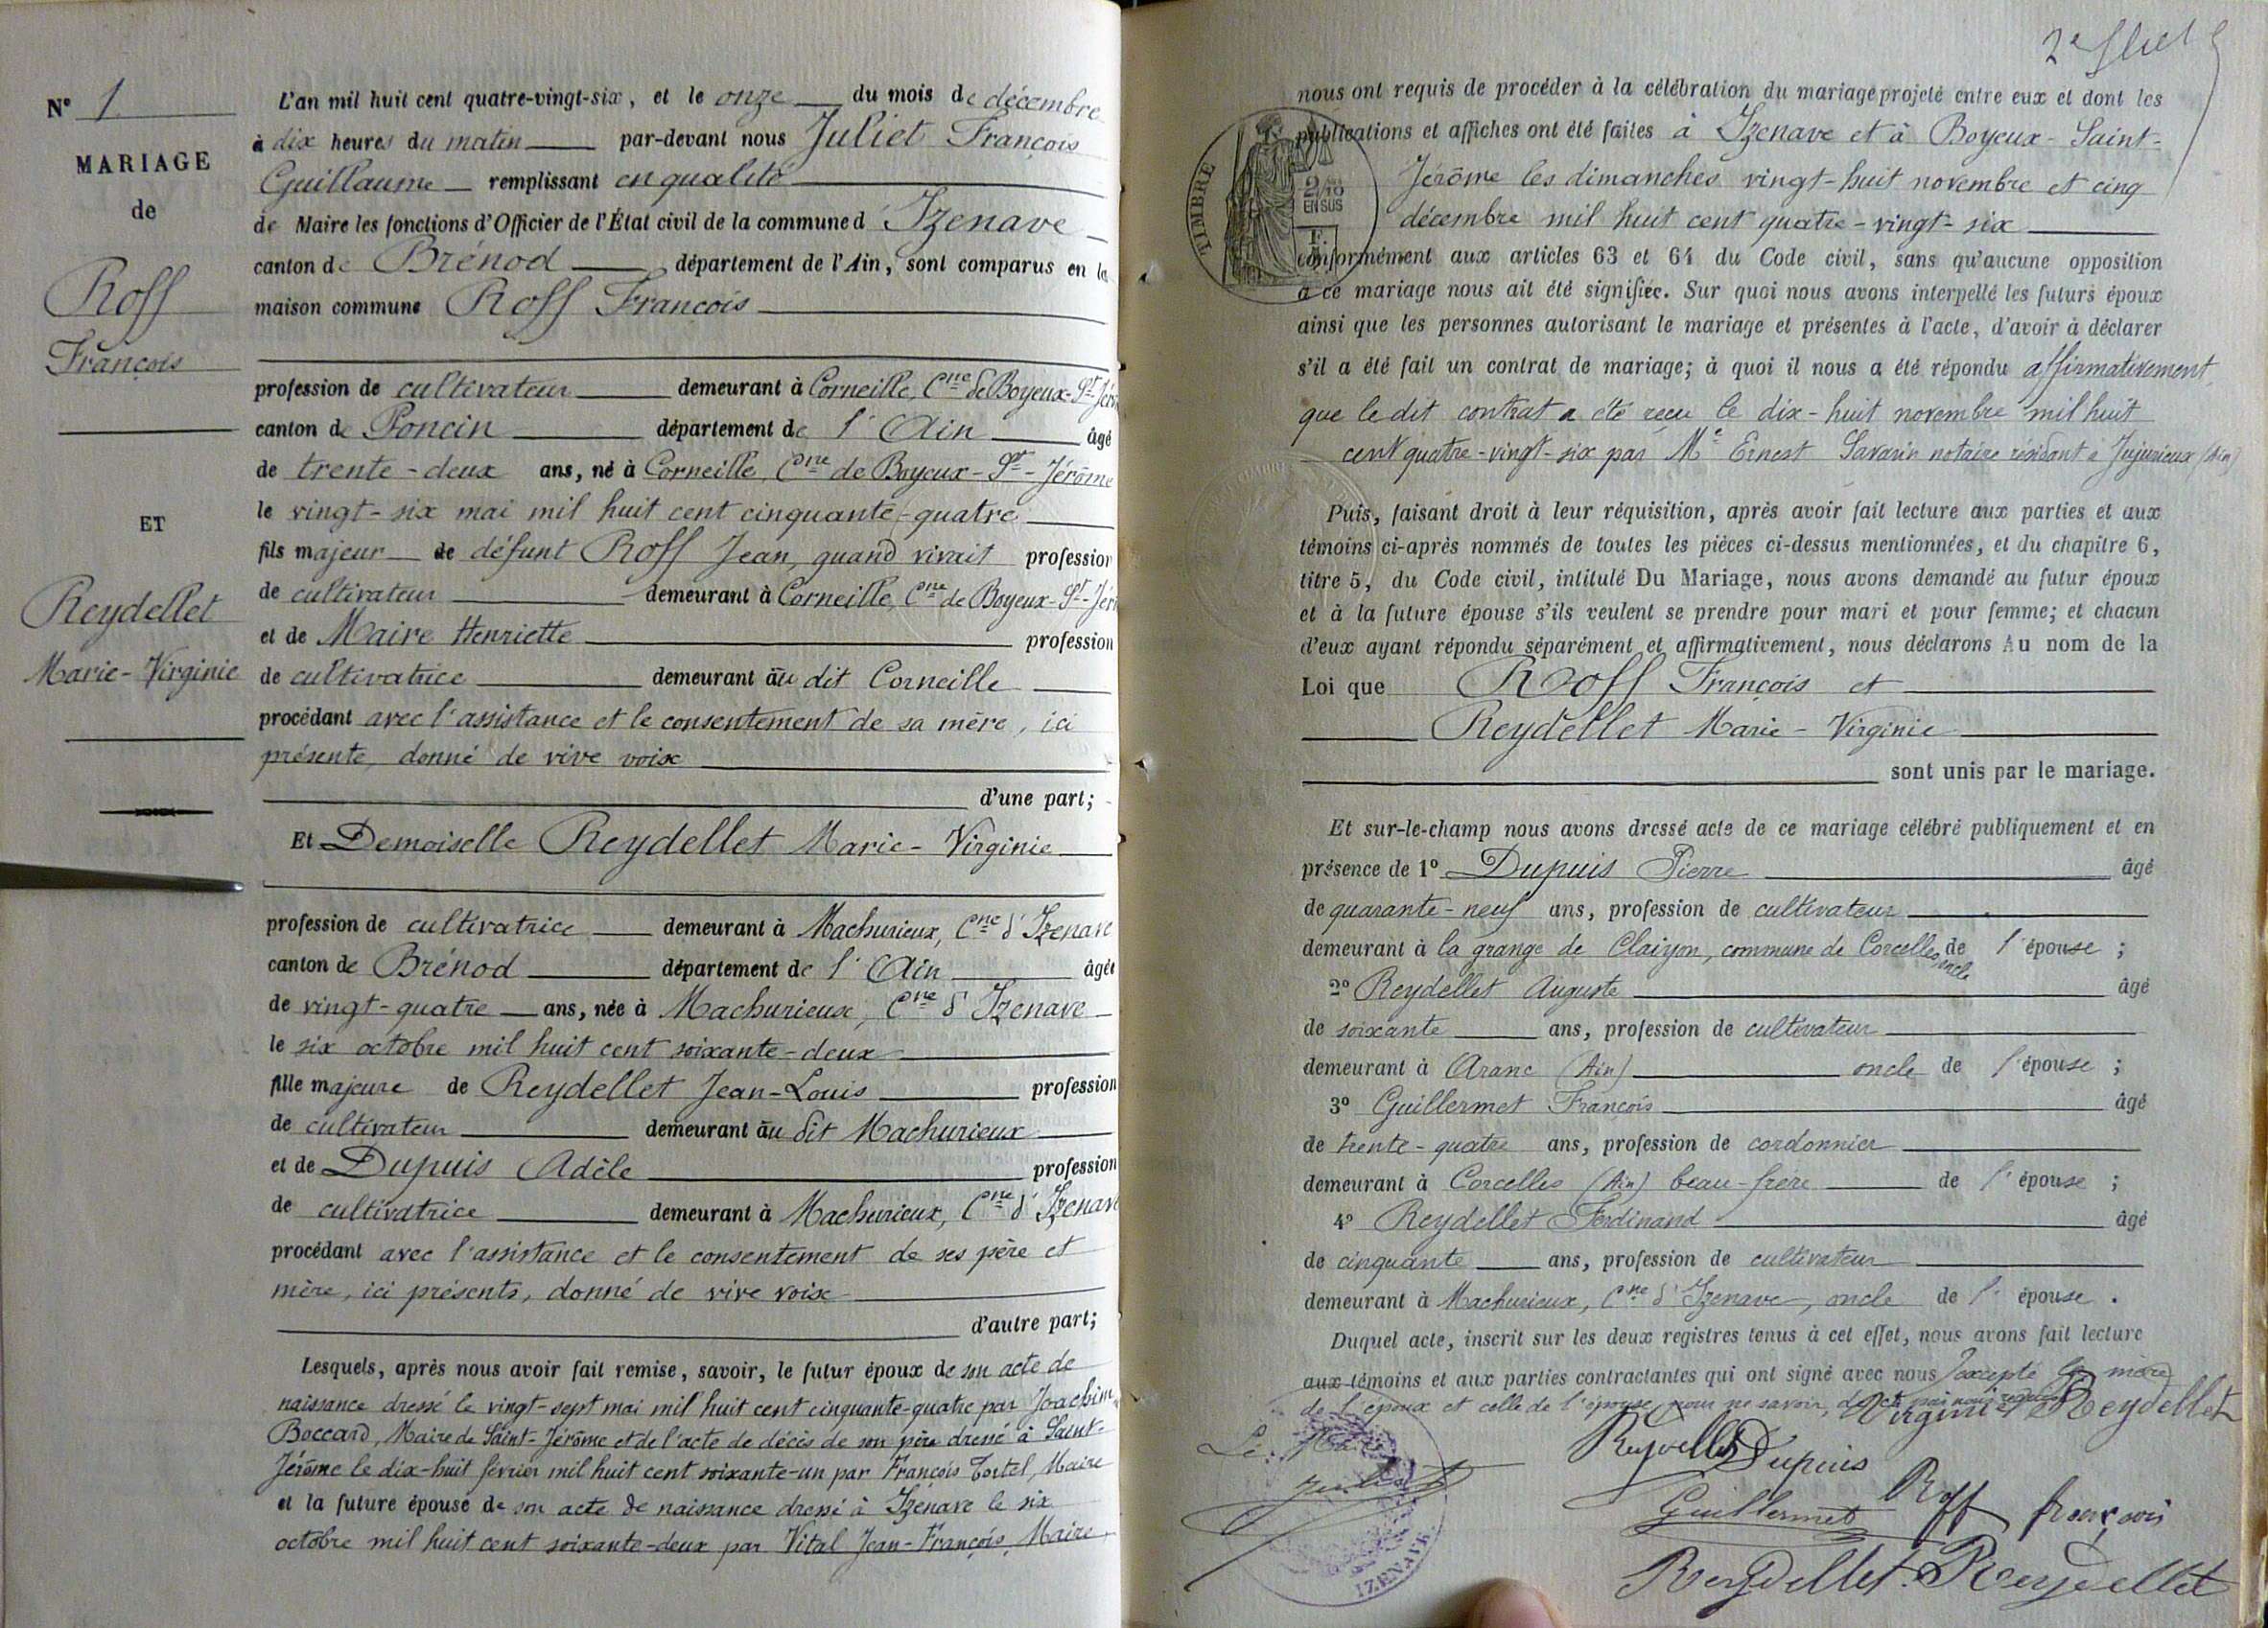 N° 1
MARIAGE
de
Roff
François
ET
Reydellet
Marie-Virginie
L'an mil huit cent quatre-vingt-six, et le onze du mois de décembre
à dix heures du matin par-devant nous Juliet François
Guillaume remplissant en qualité
de Maire les fonctions d'Officier de l'État civil de la commune d'Izenave
canton de Brénod département de l'Ain, sont comparus en la
maison commune Roff François
profession de cultivateur demeurant à Corneille, Cne de Boyeux-St-Jér
canton de Poncin département de l'Ain âgé
de trente-deux ans, né à Corneille, Cne de Boyeux-St-Jérôme
le vingt-six mai mil huit cent cinquante-quatre
fils majeur de défunt Roff Jean, quand vivait profession
de cultivateur demeurant à Corneille, Cne de Boyeux-St-Jér
et de Maire Henriette profession
de cultivatrice demeurant au dit Corneille
procédant avec l'assistance et le consentement de sa mère, ici
présente, donné de vive voix
d'une part;
Et Demoiselle Reydellet Marie-Virginie
profession de cultivatrice demeurant à Machurieux, Cne d'Izenave
canton de Brénod département de l'Ain âgée
de vingt-quatre ans, née à Machurieux, Cne d'Izenave
le six octobre mil huit cent soixante-deux
fille majeure de Reydellet Jean-Louis profession
de cultivateur demeurant au dit Machurieux
et de Dupuis Adèle profession
de cultivatrice demeurant à Machurieux, Cne d'Izenave
procédant avec l'assistance et le consentement de ses père et
mère, ici présents, donné de vive voix
d'autre part;
Lesquels, après nous avoir fait remise, savoir, le futur époux de son acte de
naissance dressé le vingt-sept mai mil huit cent cinquante-quatre par Joachim
Boccard, Maire de Saint-Jérôme et de l'acte de décès de son père dressé à Saint-
Jérôme le dix-huit février mil huit cent soixante-un par François Tortel, Maire
et la future épouse de son acte de naissance dressé à Izenave le six
octobre mil huit cent soixante-deux par Vital Jean-François, Maire
2e
TIMBRE
2/10
EN SUS
nous ont requis de procéder à la célébration du mariage projeté entre eux et dont les
publications et affiches ont été faites à Izenave et à Boyeux-Saint-
Jérôme les dimanches vingt-huit novembre et cinq
décembre mil huit cent quatre-vingt-six
conformément aux articles 63 et 64 du Code civil, sans qu'aucune opposition
à ce mariage nous ait été signifiée. Sur quoi nous avons interpellé les futurs époux
ainsi que les personnes autorisant le mariage et présentes à l'acte, d'avoir à déclarer
s'il a été fait un contrat de mariage; à quoi il nous a été répondu affirmativement
que le dit contrat a été reçu le dix-huit novembre mil huit
cent quatre-vingt-six par Me Ernest Savarin notaire résidant à Jujurieux (Ain)
Puis, faisant droit à leur réquisition, après avoir fait lecture aux parties et aux
témoins ci-après nommés de toutes les pièces ci-dessus mentionnées, et du chapitre 6,
titre 5, du Code civil, intitulé Du Mariage, nous avons demandé au futur époux
et à la future épouse s'ils veulent se prendre pour mari et pour femme; et chacun
d'eux ayant répondu séparément et affirmativement, nous déclarons Au nom de la
Loi que Roff François et
Reydellet Marie-Virginie
sont unis par le mariage.
Et sur-le-champ nous avons dressé acte de ce mariage célébré publiquement et en
présence de 1° Dupuis Pierre âgé
de quarante-neuf ans, profession de cultivateur
demeurant à la grange de Clairyon, commune de Corcelles, oncle de l'épouse ;
2° Reydellet Auguste âgé
de soixante ans, profession de cultivateur
demeurant à Aranc (Ain) oncle de l'épouse ;
3° Guillermet François âgé
de trente-quatre ans, profession de cordonnier
demeurant à Corcelles (Ain) beau-frère de l'épouse ;
4° Reydellet Ferdinand âgé
de cinquante ans, profession de cultivateur
demeurant à Machurieux, Cne d'Izenave, oncle de l'épouse .
Duquel acte, inscrit sur les deux registres tenus à cet effet, nous avons fait lecture
aux témoins et aux parties contractantes qui ont signé avec nous excepté la mère
de l'époux et celle de l'épouse pour ne savoir, de ce par nous requises
Virginie Reydellet
Le Maire
Juliet
Reydellet Dupuis
Guillermet Roff françois
Reydellet Reydellet
IZENAVE